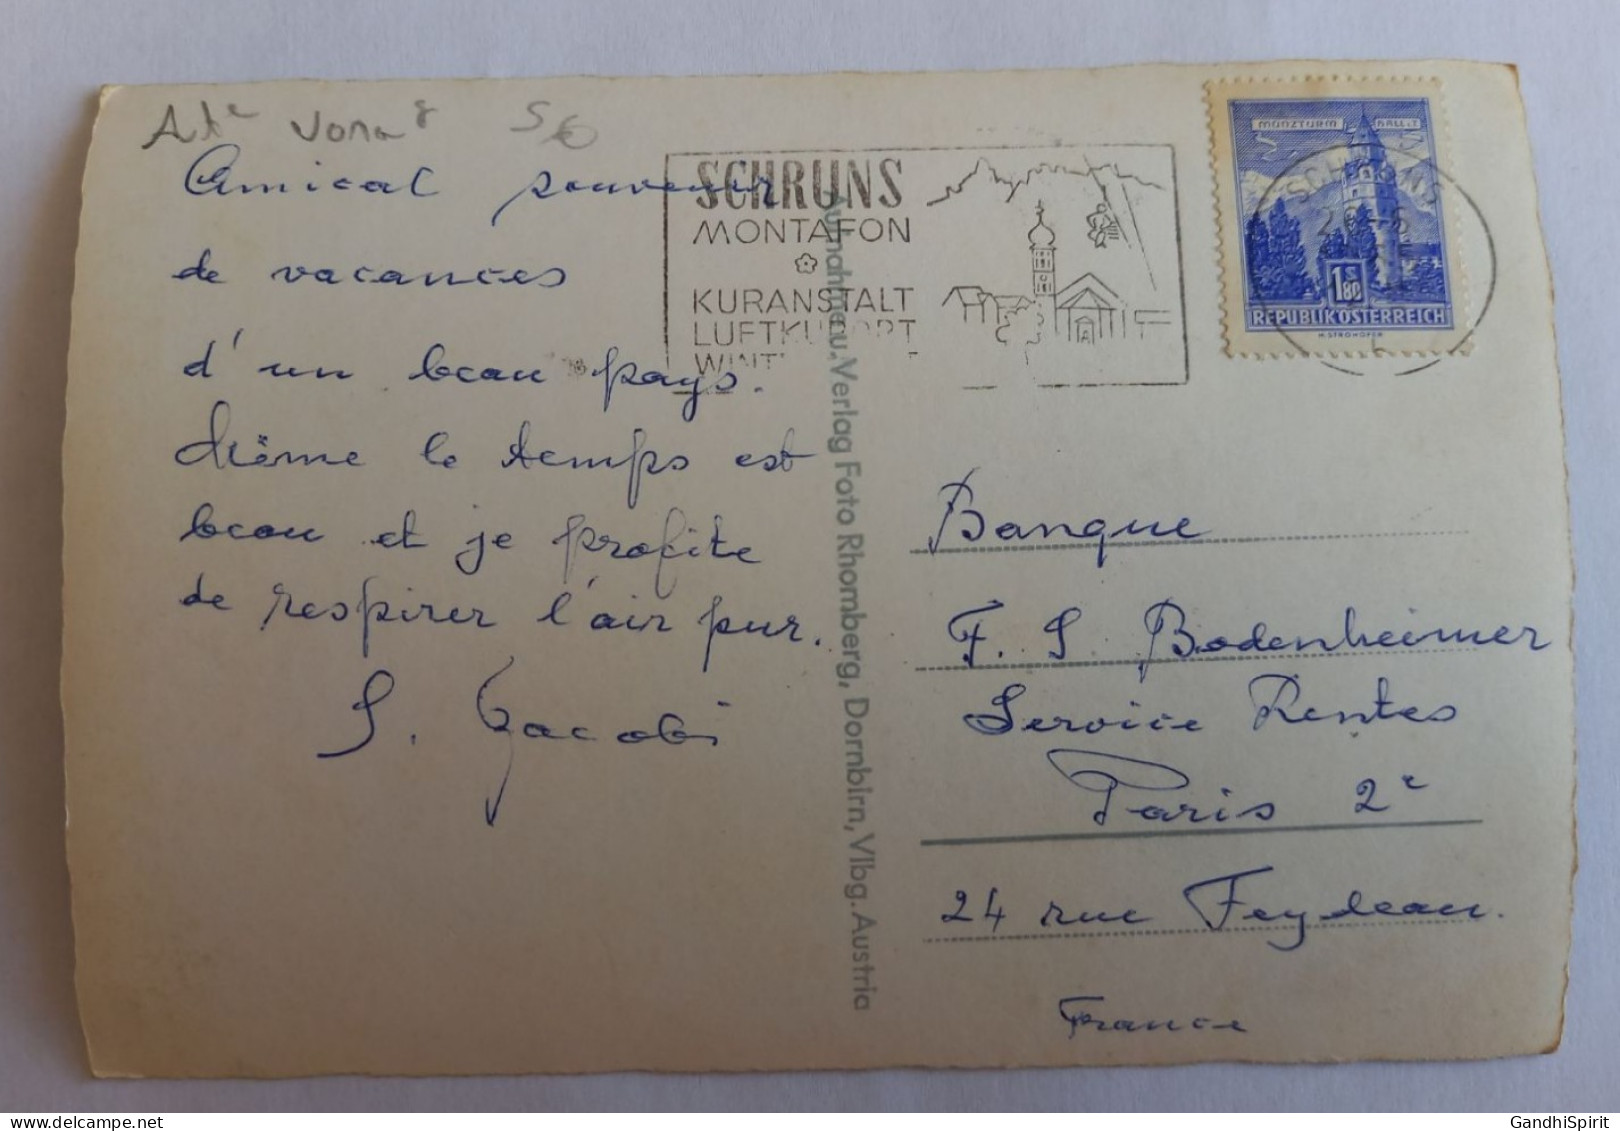 Amical souvenir
de vacances
d'un beau pays.
Même le temps est
beau et je profite
de respirer l'air pur.
S. Jacobi
SCHRUNS
MONTAFON
KURANSTALT
LUFTKURORT
Aufnahme u. Verlag Foto Rhomberg, Dornbirn, Vlbg. Austria
MÜNZTURM HALL i. T.
1 S 80
REPUBLIK ÖSTERREICH
H. STROHOFER
SCHRUNS
Banque
F. S Bodenheimer
Service Rentes
Paris 2e
24 rue Feydeau.
France
GandhiSpirit